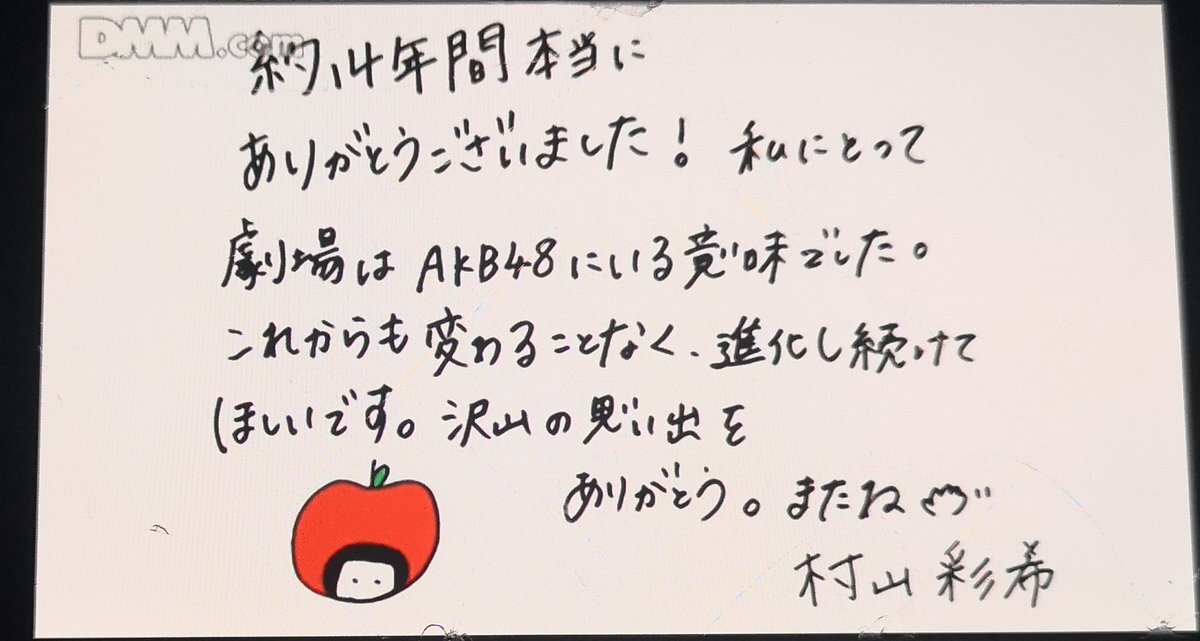 DMM.com
約14年間本当に
ありがとうございました! 私にとって
劇場は AKB48にいる意味でした。
これからも変わることなく、進化し続けて
ほしいです。沢山の思い出を
ありがとう。またね
村山彩希